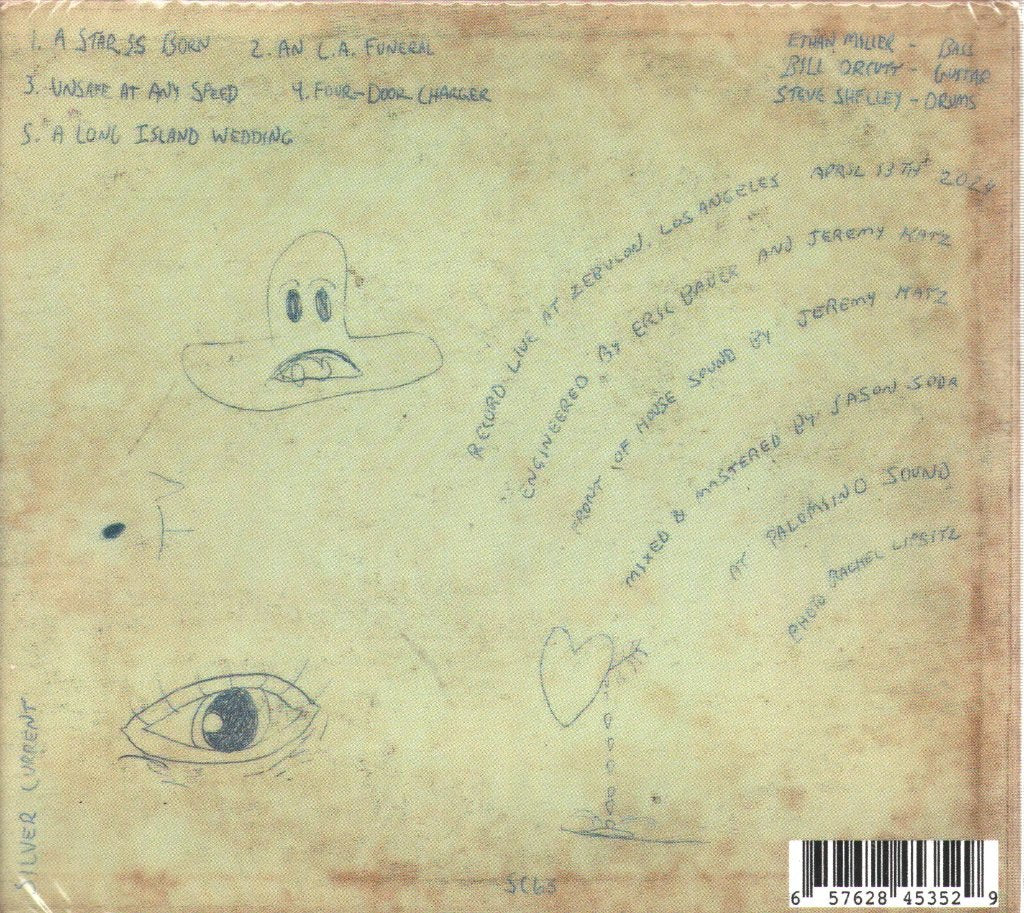 1. A STAR IS BORN 2. AN L.A. FUNERAL
3. UNSAFE AT ANY SPEED 4. FOUR-DOOR CHARGER
5. A LONG ISLAND WEDDING
ETHAN MILLER - BASS
BILL ORCUTT - GUITAR
STEVE SHELLEY - DRUMS
RECORD LIVE AT ZEBULON, LOS ANGELES APRIL 13TH 2024
ENGINEERED BY ERIC BAUER AND JEREMY KATZ
FRONT OF HOUSE SOUND BY JEREMY KATZ
MIXED & MASTERED BY JASON SODA
AT PALOMINO SOUND
PHOTO RACHEL LIPSITZ
SILVER CURRENT
SC63
6 57628 45352 9